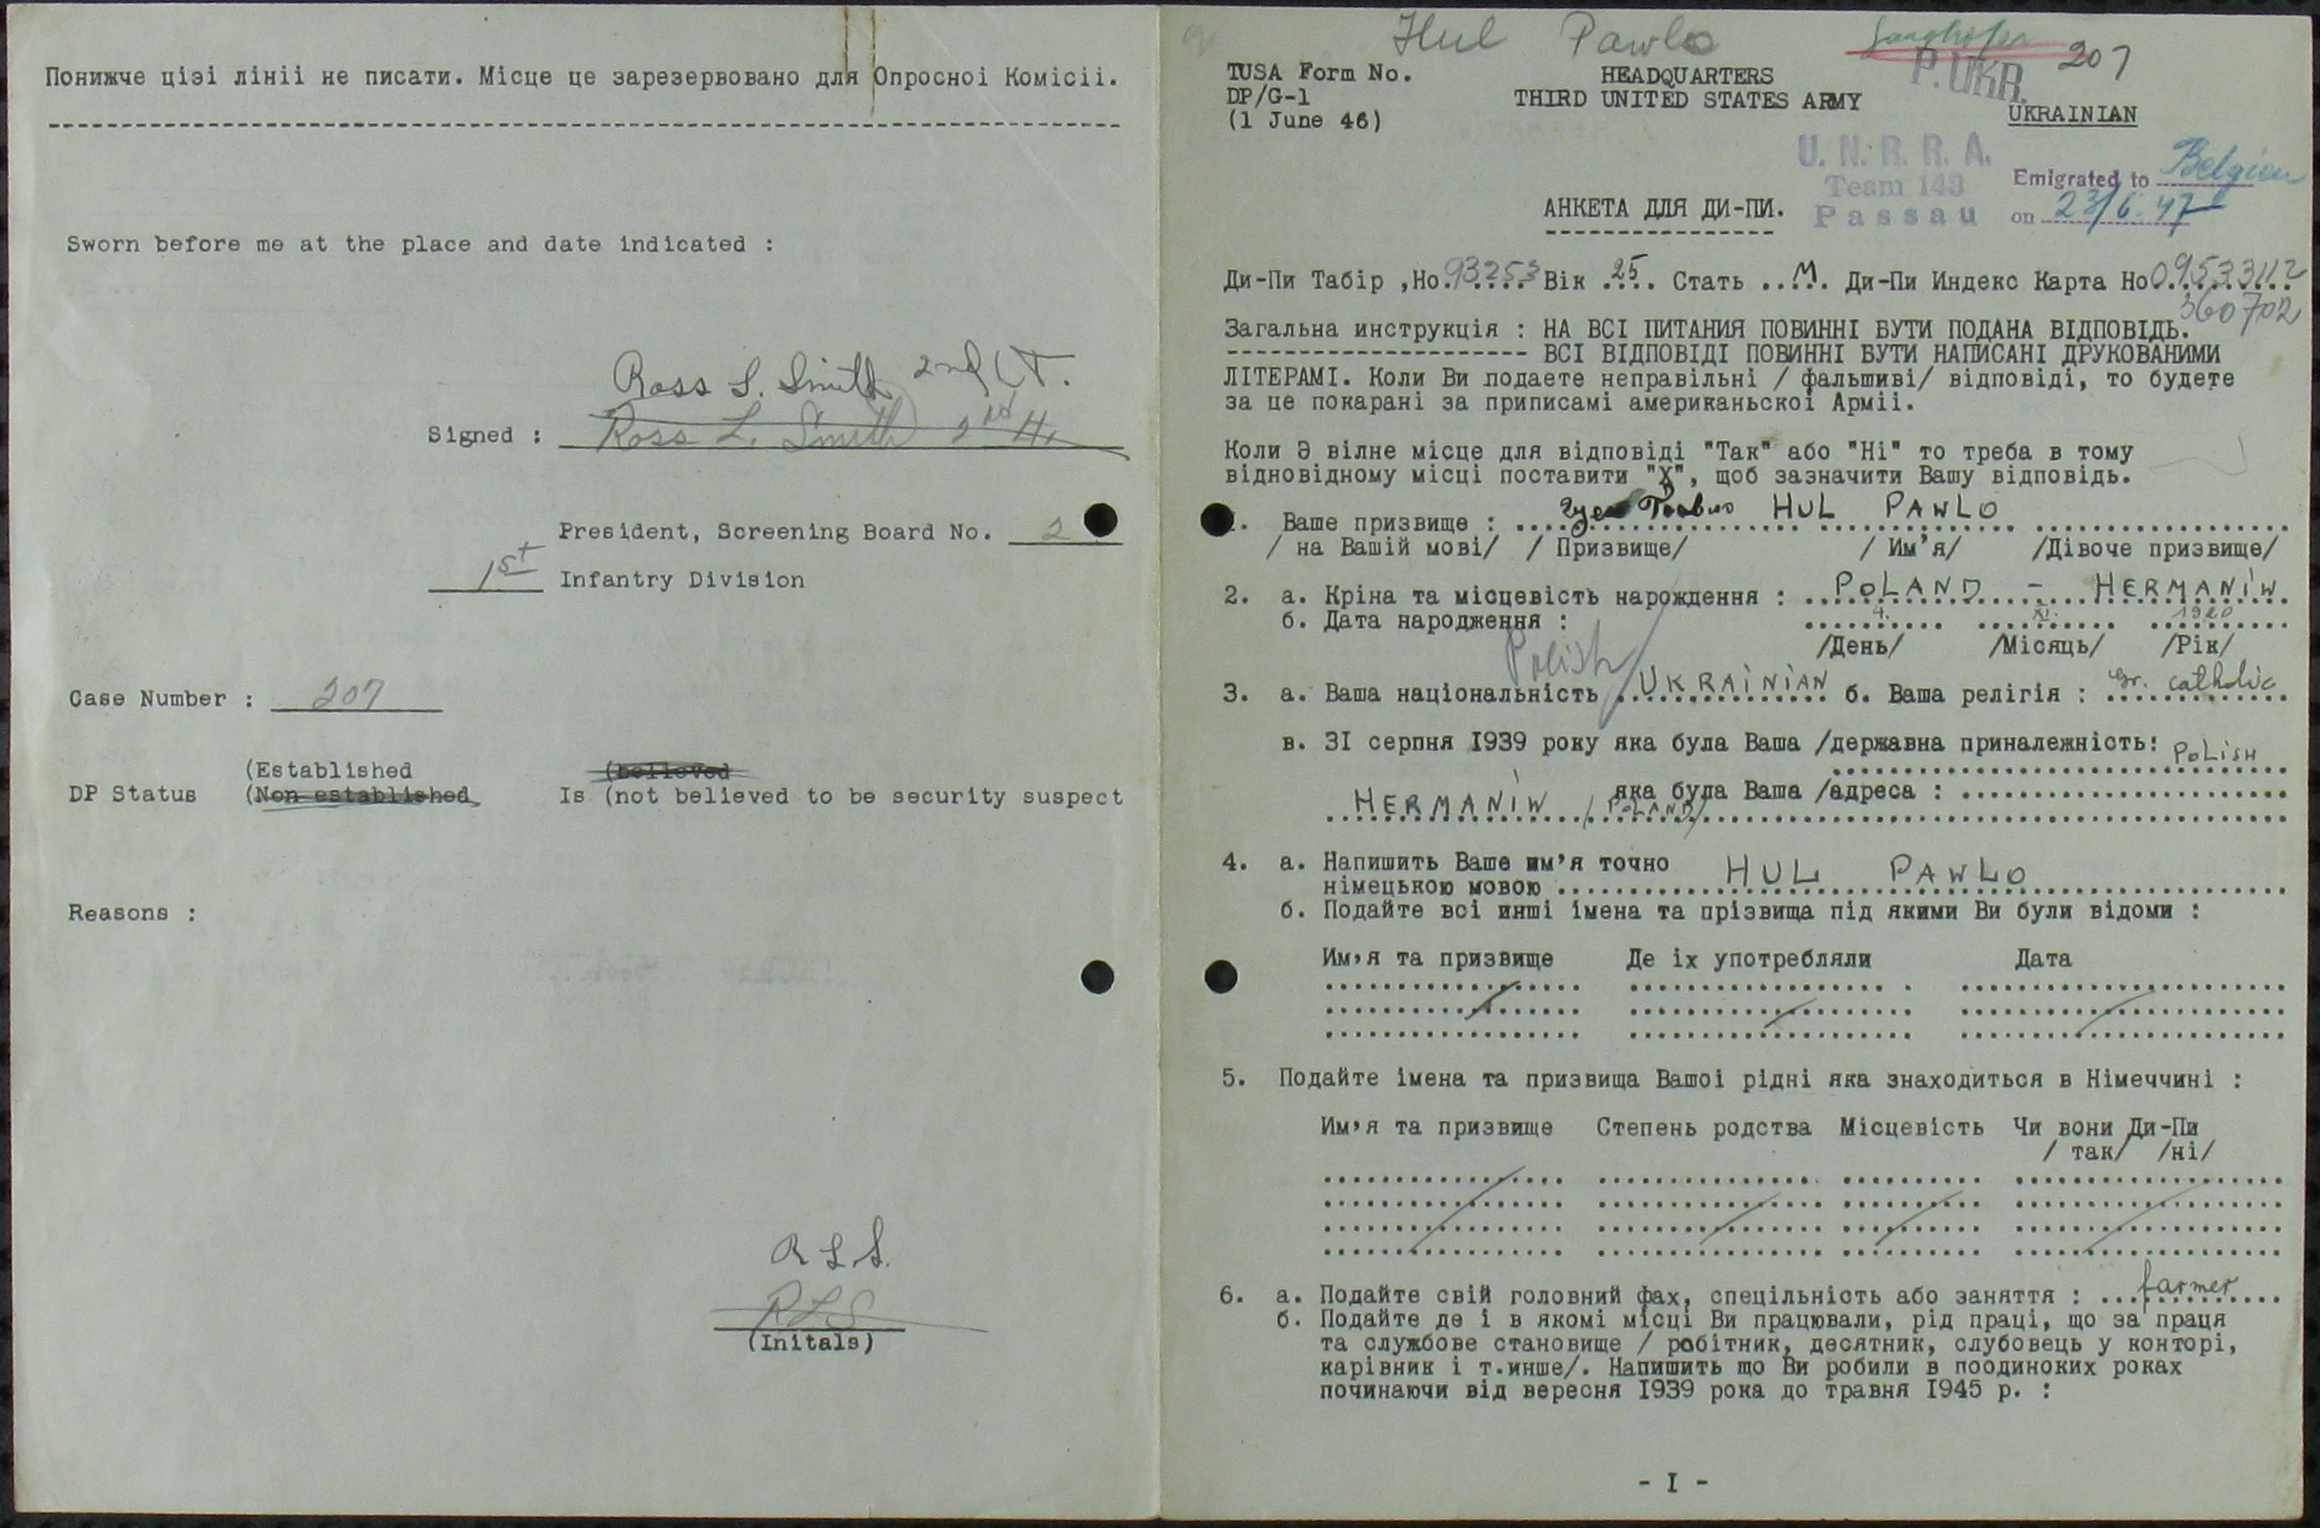 Понижче цієі лініі не писати. Місце це зарезервовано для Опросноі Комісіі.
Sworn before me at the place and date indicated :
Ross L. Smith 2nd Lt.
Signed : Ross L. Smith 2nd Lt.
President, Screening Board No. 2
1st Infantry Division
Case Number : 207
(Established (believed
DP Status (Non established Is (not believed to be security suspect
Reasons :
R L S.
RLS
(Initals)
Hul Pawlo
207
TUSA Form No. HEADQUARTERS P. UKR.
DP/G-1 THIRD UNITED STATES ARMY
(1 June 46) UKRAINIAN
U. N. R. R. A.
Team 143 Emigrated to Belgien
Passau on 23/6. 47
АНКЕТА ДЛЯ ДИ-ПИ.
Ди-Пи Табір ,Но. 93253 Вік 25 Стать M. Ди-Пи Индекс Карта Но 09533112
360702
Загальна инструкція : НА ВСІ ПИТАНИЯ ПОВИННІ БУТИ ПОДАНА ВІДПОВІДЬ.
ВСІ ВІДПОВІДІ ПОВИННІ БУТИ НАПИСАНІ ДРУКОВАНИМИ
ЛІТЕРАМІ. Коли Ви подаете неправільні / фальшиві/ відповіді, то будете
за це покарані за приписамі американьскоі Арміі.
Коли Э вілне місце для відповіді "Так" або "Ні" то треба в тому
відновідному місці поставити "Х", щоб зазначити Вашу відповідь.
. Ваше призвище : HUL PAWLO
/ на Вашій мові/ / Призвище/ / Им'я/ /Дівоче призвище/
2. а. Кріна та місцевість нарождення : POLAND - HERMANIW
б. Дата народження : 4. XI. 1920
/День/ /Місяць/ /Рік/
Polish
3. а. Ваша національність UKRAINIAN б. Ваша релігія : gr. catholic
в. 3I серпня I939 року яка була Ваша /державна приналежність: POLISH
яка була Ваша /адреса :
HERMANIW /POLAND/
4. а. Напишить Ваше им'я точно
німецькою мовою HUL PAWLO
б. Подайте всі инші імена та прізвища під якими Ви були відоми :
Им,я та призвище Де іх употребляли Дата
5. Подайте імена та призвища Вашоі рідні яка знаходиться в Німеччині :
Им,я та призвище Степень родства Місцевість Чи вони Ди-Пи
/ так/ /ні/
6. а. Подайте свій головний фах, спецільність або заняття : farmer
б. Подайте де і в якомі місці Ви працювали, рід праці, що за праця
та службове становище / робітник, десятник, слубовець у конторі,
карівник і т.инше/. Напишить що Ви робили в поодиноких роках
починаючи від вересня I939 рока до травня I945 р. :
- I -